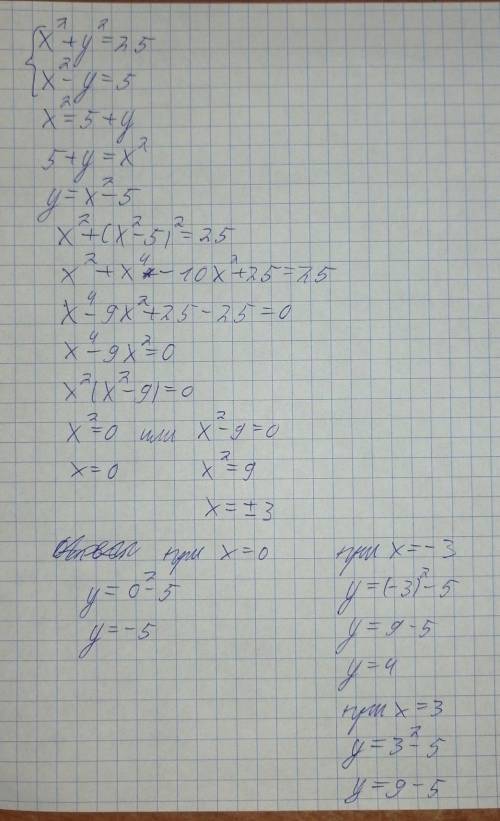 {x²+y²=25
x²-y=5
x²=5+y
5+y=x²
y=x²-5
x²+(x²-5)²=25
x²+x⁴-10x²+25=25
x⁴-9x²+25-25=0
x⁴-9x²=0
x²(x²-9)=0
x²=0 или x²-9=0
x=0 x²=9
x=±3
при x=0
y=0²-5
y=-5
при x=-3
y=(-3)²-5
y=9-5
y=4
при x=3
y=3²-5
y=9-5